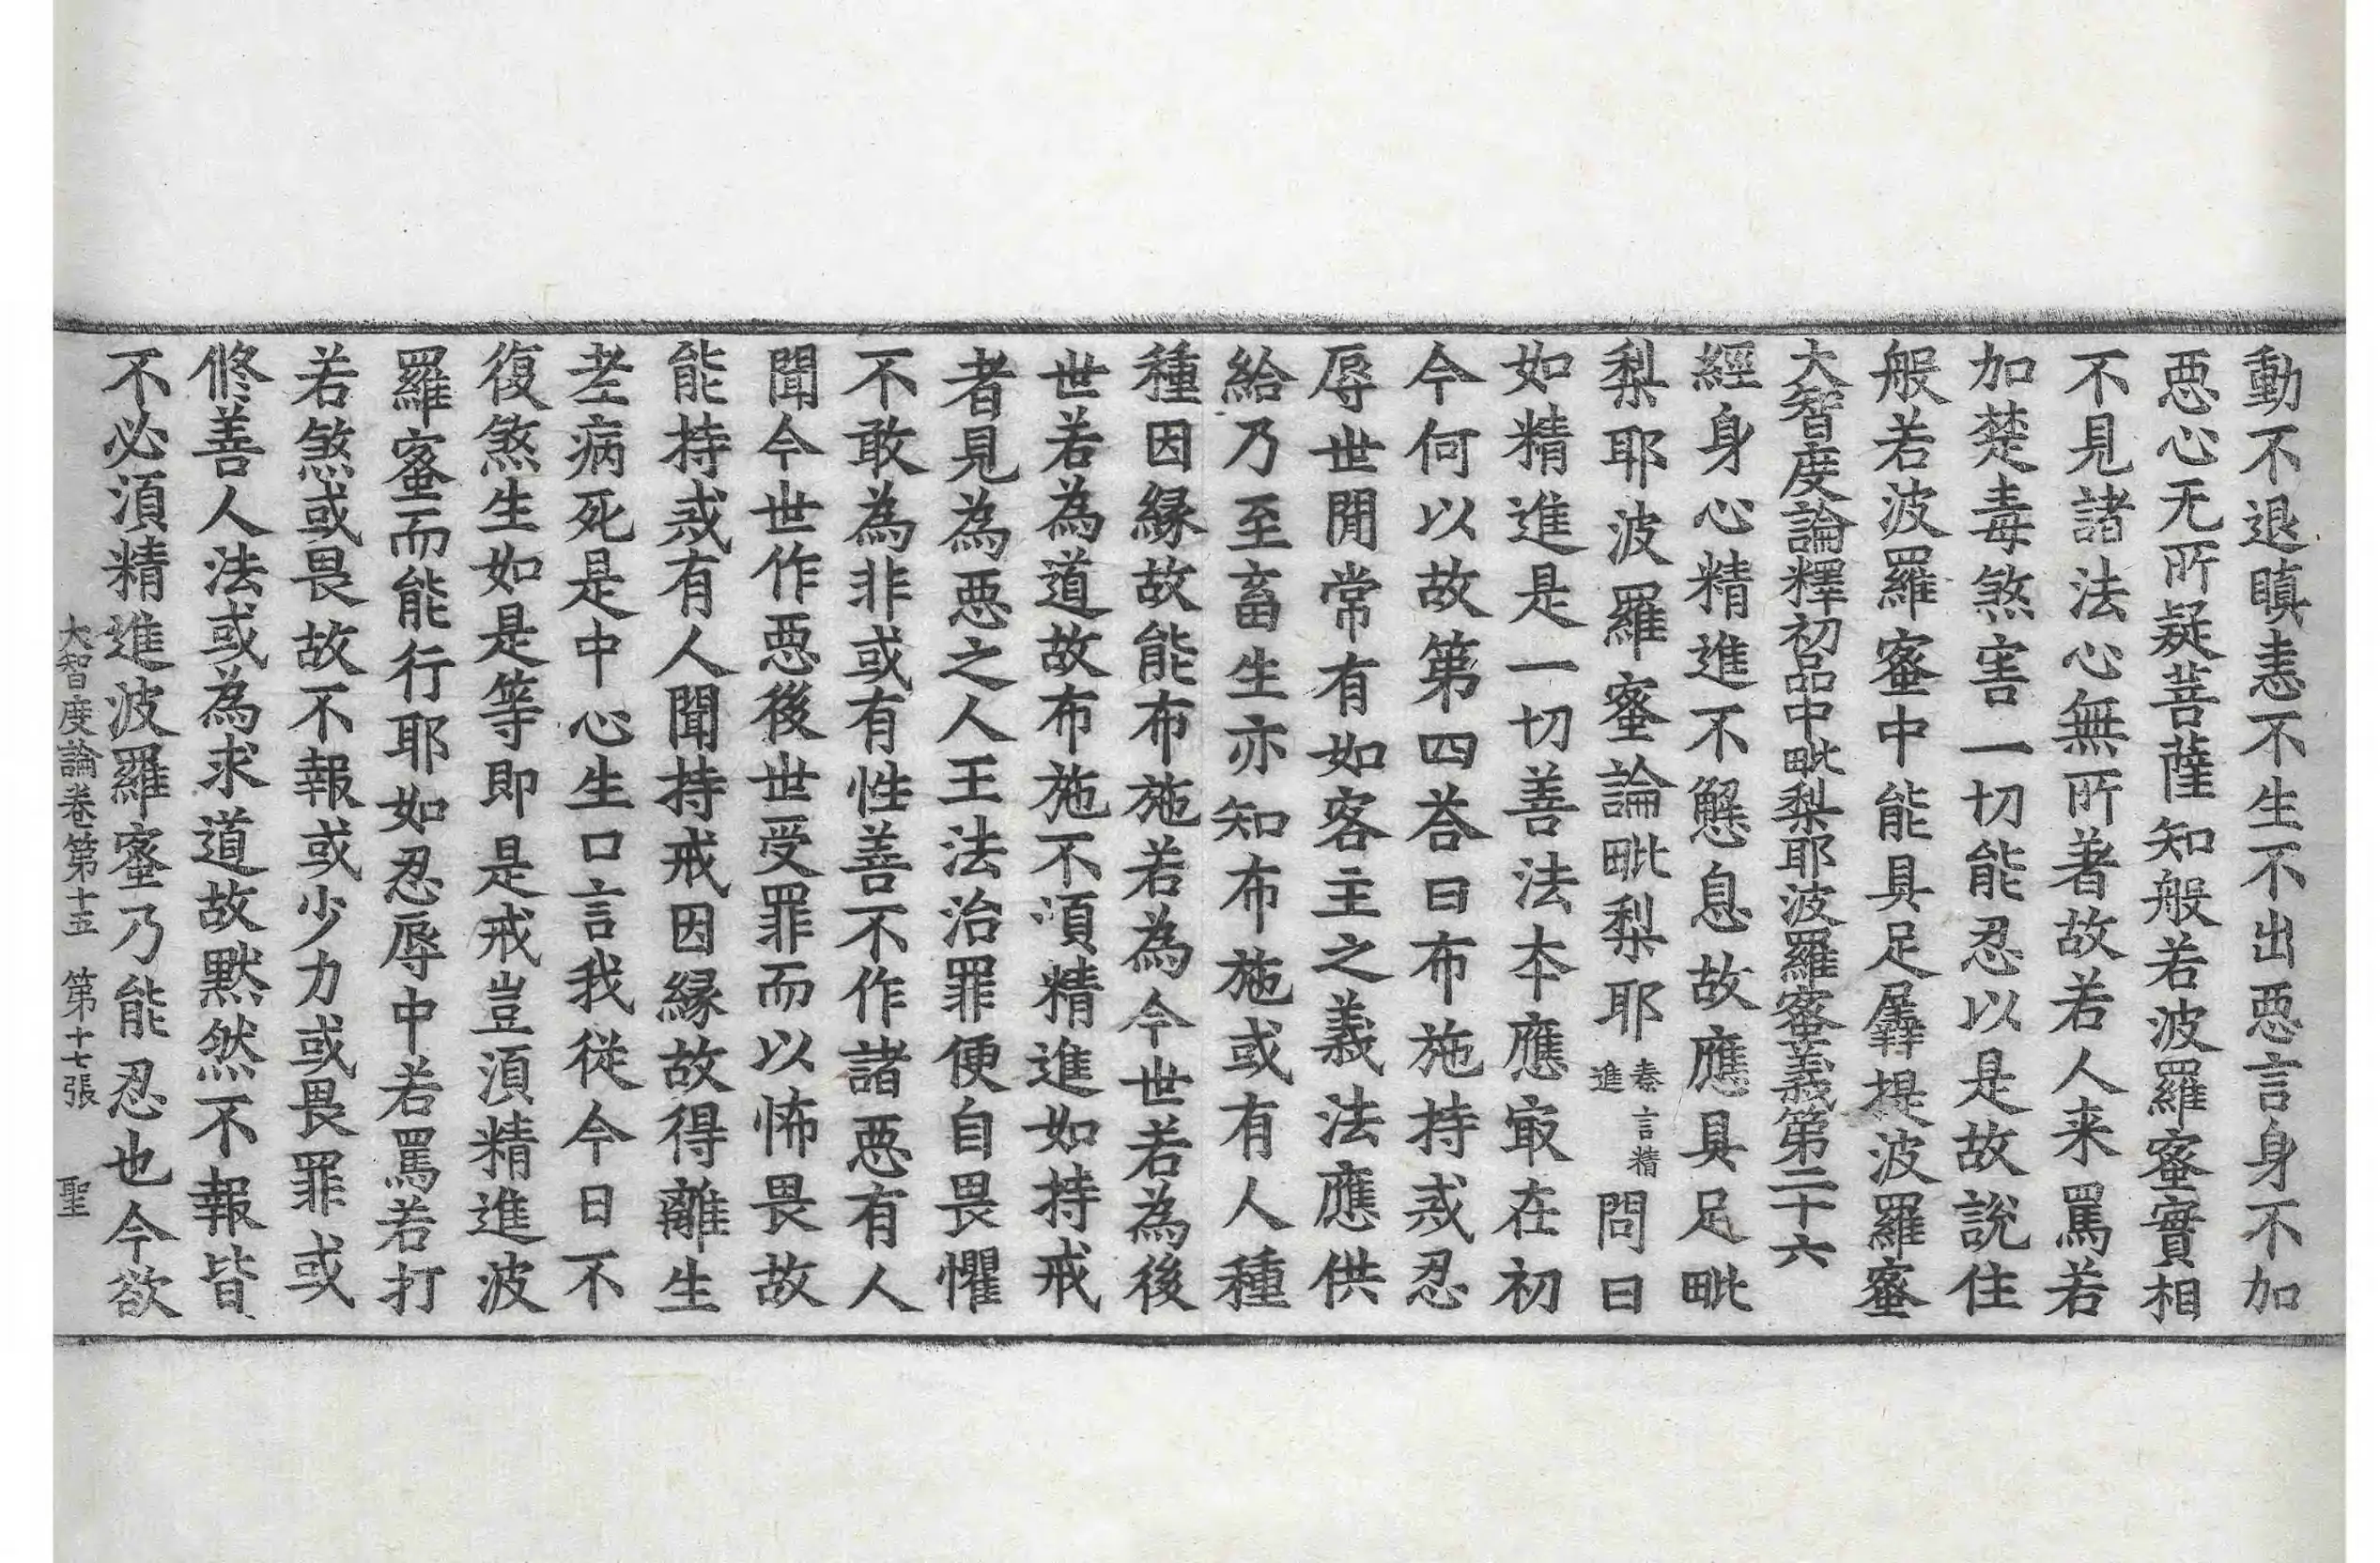 動不退瞋恚不生不出惡言身不加
惡心无所疑菩薩知般若波羅蜜實相
不見諸法心無所著故若人来罵若
加楚毒煞害一切能忍以是故說住
般若波羅蜜中能具足羼提波羅蜜
大智度論釋初品中毗梨耶波羅蜜義第二十六
經身心精進不懈息故應具足毗
梨耶波羅蜜論毗梨耶秦言精進問曰
如精進是一切善法本應㝡在初
今何以故第四荅曰布施持戒忍
辱世閒常有如客主之義法應供
給乃至畜生亦知布施或有人種
種因緣故能布施若為今世若為後
世若為道故布施不湏精進如持戒
者見為惡之人王法治罪便自畏懼
不敢為非或有性善不作諸惡有人
聞今世作惡後世受罪而以怖畏故
能持戒有人聞持戒因緣故得離生
老病死是中心生口言我從今日不
復煞生如是等即是戒豈湏精進波
羅蜜而能行耶如忍辱中若罵若打
若煞或畏故不報或少力或畏罪或
修善人法或為求道故默然不報皆
不必湏精進波羅蜜乃能忍也今欲
大智度論卷第十五 第十七張 聖